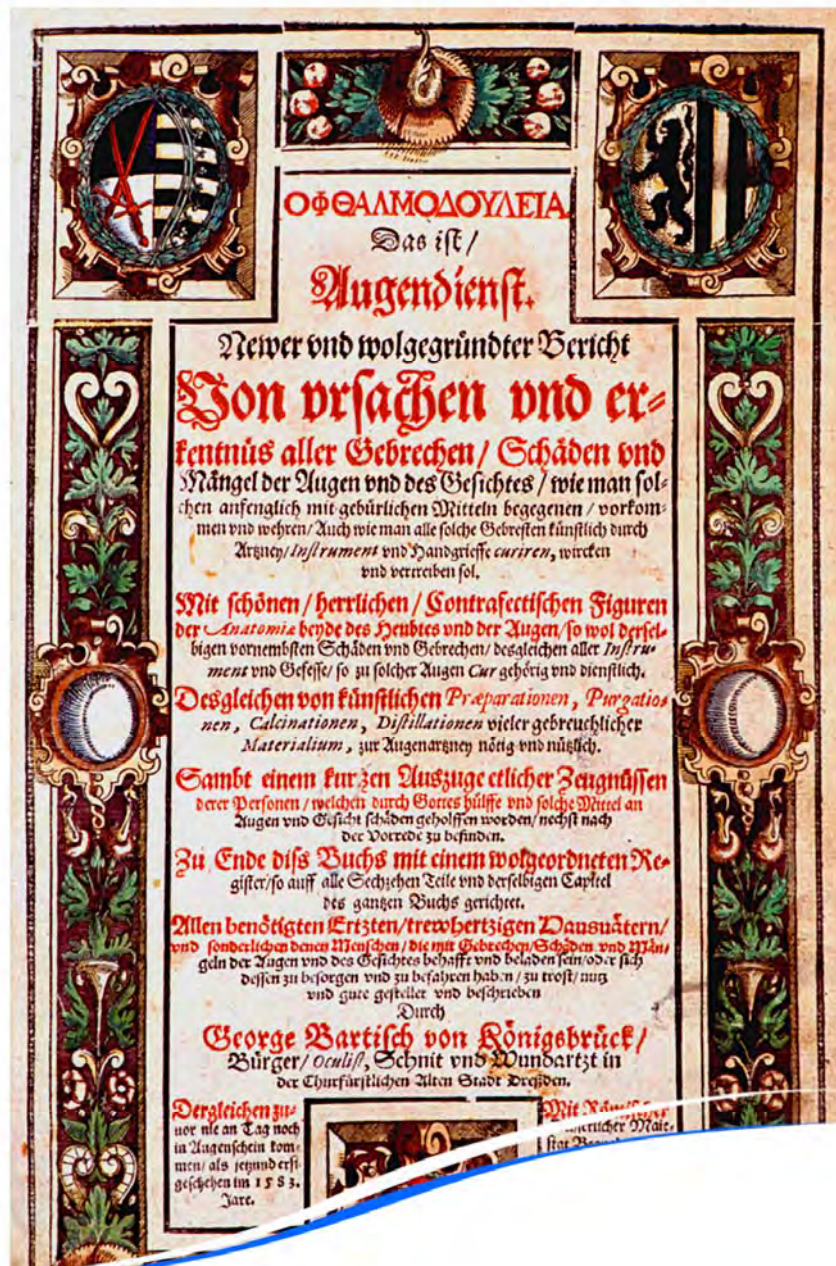 ΟΦΘΑΛΜΟΔΟΥΛΕΙΑ.
Das ist/
Augendienst.
Newer vnd wolgegründter Bericht
Von vrsachen vnd er-
kentnüs aller Gebrechen/ Schäden vnd
Mängel der Augen vnd des Gesichtes/ wie man sol-
chen anfenglich mit gebürlichen Mitteln begegenen/ vorkom-
men vnd wehren/ Auch wie man alle solche Gebresten künstlich durch
Artzney/ Instrument vnd Handgrieffe curiren, wircken
vnd vertreiben sol.
Mit schönen/ herrlichen/ Contrafectischen Figuren
der Anatomia beyde des Heubtes vnd der Augen/ so wol dersel-
bigen vornembsten Schäden vnd Gebrechen/ desgleichen aller Instru-
ment vnd Gefesse/ so zu solcher Augen Cur gehörig vnd dienstlich.
Desgleichen von künstlichen Præparationen, Purgatio-
nen, Calcinationen, Distillationen vieler gebreuchlicher
Materialium, zur Augenartzney nötig vnd nützlich.
Sambt einem kurzen Auszuge etlicher Zeugnüssen
derer Personen/ welchen durch Gottes hülffe vnd solche Mittel an
Augen vnd Gesicht schäden geholffen worden/ nechst nach
der Vorrede zu befinden.
Zu Ende diss Buchs mit einem wolgeordneten Re-
gister/ so auff alle Sechzehen Teile vnd derselbigen Capitel
des gantzen Buchs gerichtet.
Allen benötigten Ertzten/ trewhertzigen Hausuätern/
vnd sonderlichen denen Menschen/ die mit Gebrechen/ Schäden vnd Män-
geln der Augen vnd des Gesichtes behafft vnd beladen sein/ oder sich
dessen zu besorgen vnd zu befahren haben/ zu trost/ nutz
vnd gute gestellet vnd beschrieben
Durch
George Bartisch von Königsbrück/
Bürger/ Oculist, Schnit vnd Wundartzt in
der Churfürstlichen Alten Stadt Dreßden.
Dergleichen zu-
uor nie an Tag noch
in Augenschein kom-
men/ als jetzund erst
geschehen im 1583.
Jare.
Mit
Mait-